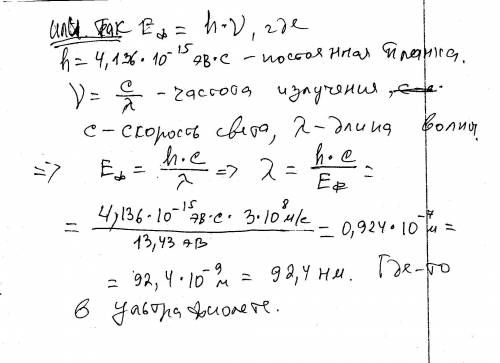 или так Eф = h·ν, где
h = 4,136·10⁻¹⁵ эВ·с – постоянная Планка.
ν = c/λ – частота излучения,
c – скорость света, λ – длина волны.
=> Eф = h·c/λ => λ = h·c/Eф =
= 4,136·10⁻¹⁵ эВ·с · 3·10⁸ м/с / 13,43 эВ = 0,924·10⁻⁷ м =
= 92,4·10⁻⁹ м = 92,4 нм. Где-то
в ультрафиолете.